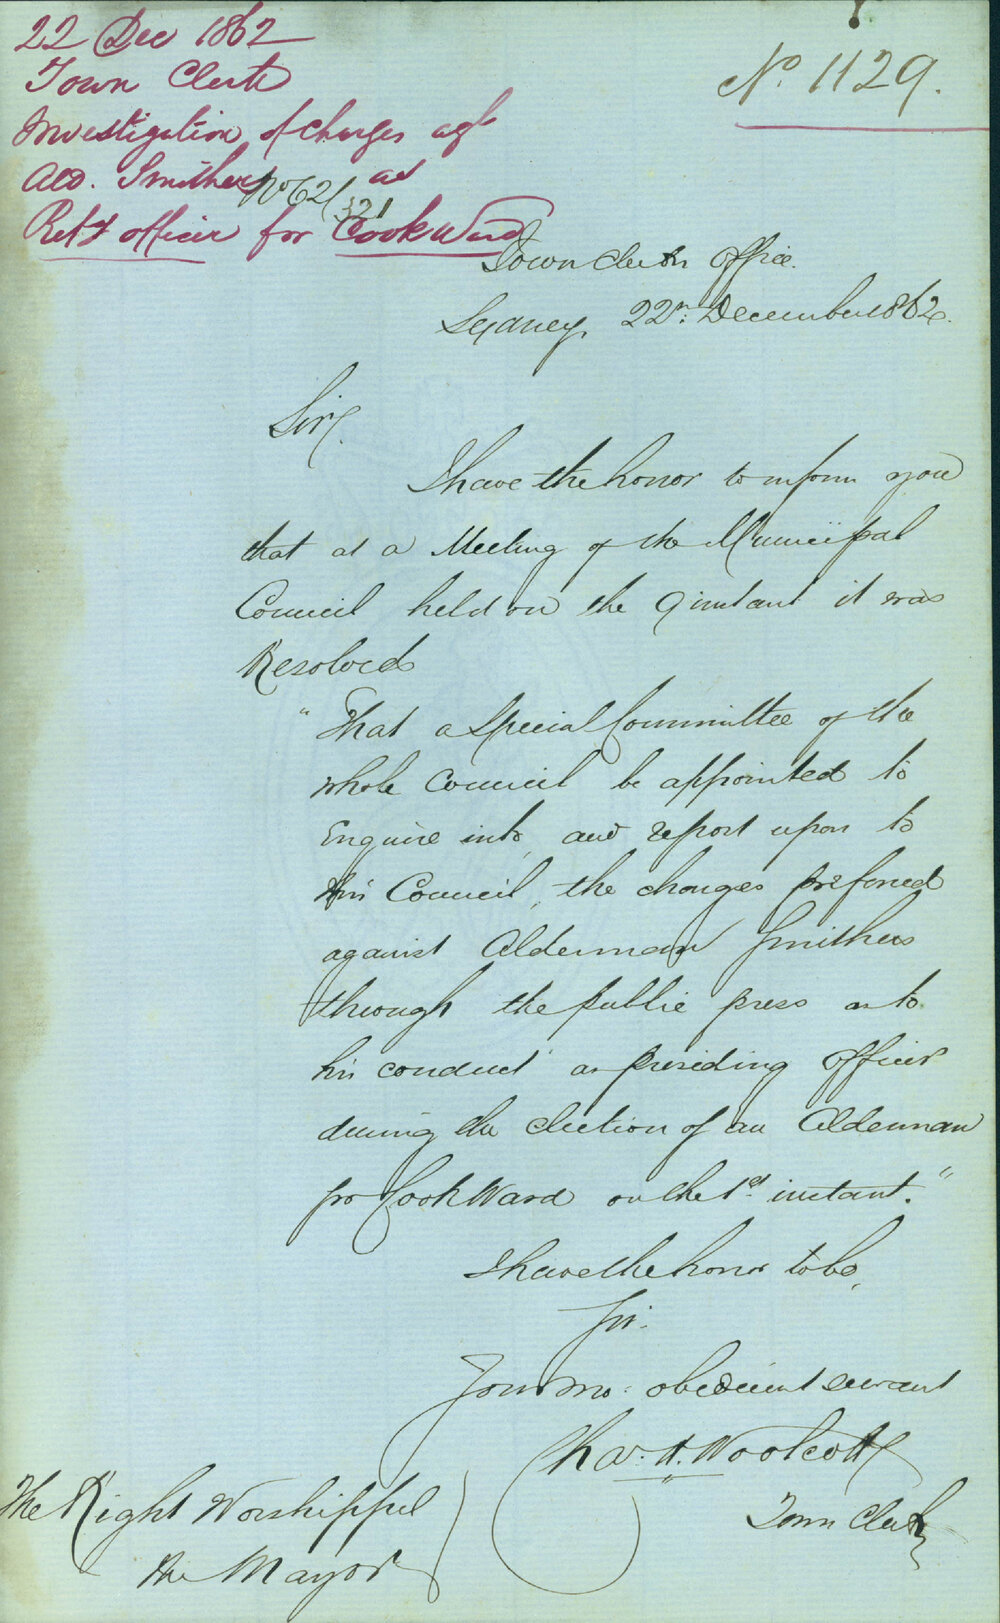 22 Dec 1862
Town Clerk
Investigation of charges agt
Ald. Smithers as
Retg officer for Cook Ward
No 621
321
No. 1129.
Town Clerk's Office.
Sydney, 22nd: December 1862.
Sir,
I have the honor to inform you
that at a Meeting of the Municipal
Council held on the 9 instant it was
Resolved
"That a Special Committee of the
whole Council be appointed to
Enquire into, and report upon to
this Council, the charges preferred
against Alderman Smithers
through the public press as to
his conduct as presiding officer
during the election of an Alderman
for Cook Ward on the 1st. instant."
I have the honor to be,
Sir.
Your mo: obedient servant
Chas. H. Woolcott
Town Clerk
The Right Worshipful
the Mayor